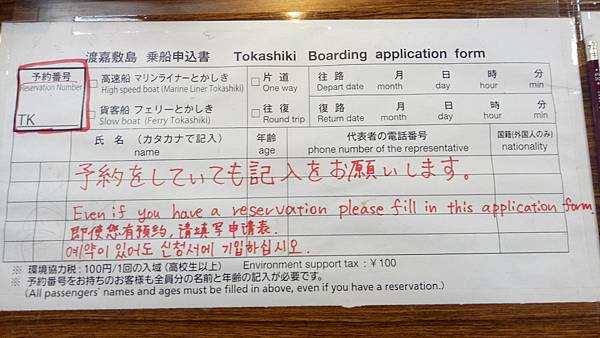 渡嘉敷島 乗船申込書 Tokashiki Boarding application form
予約番号
Reservation Number
TK
□ 高速船 マリンライナーとかしき
High speed boat (Marine Liner Tokashiki)
□ 貨客船 フェリーとかしき
Slow boat (Ferry Tokashiki)
□ 片道
One way
□ 往復
Round trip
往路 月 日 時 分
Depart date month day hour min
復路 月 日 時 分
Return date month day hour min
氏名 (カタカナで記入) 年齢 代表者の電話番号 国籍(外国人のみ)
name age phone number of the representative nationality
予約をしていても記入をお願いします。
Even if you have a reservation please fill in this application form.
即使您有预约,请填写申请表.
예약이 있어도 신청서에 기입하십시오.
※ 環境協力税:100円/1回の入域(高校生以上) Environment support tax:¥100
※ 予約番号をお持ちのお客様も全員分の名前と年齢の記入が必要です。
(All passengers' names and ages must be filled in above, even if you have a reservation.)